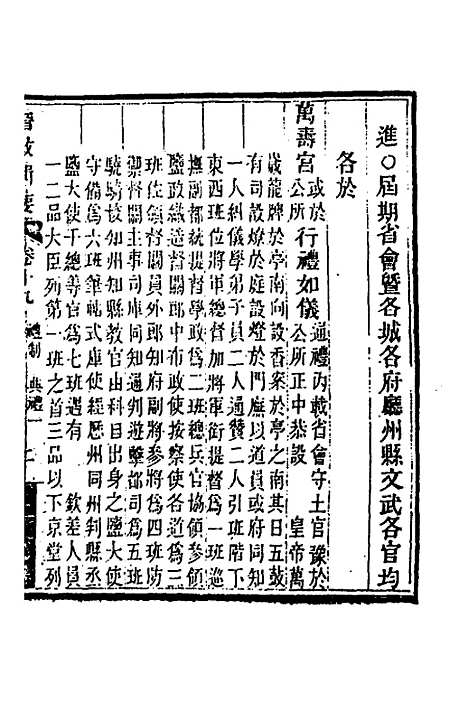 進○屆期省會暨各城各府廳州縣文武各官均
各於
萬壽宮或於公所行禮如儀通禮內載省會守土官豫於公所正中恭設 皇帝萬
歲龍牌於亭南向設香案於亭之南其日五鼓
有司設燎於庭設燈於門廡以道員或府同知
一人糾儀學弟子員二人通贊二人引班階下
東西班位將軍總督加將軍銜提督爲一班巡
撫副都統提督學政爲二班總兵官協領參領
鹽政織造督關郎中布政使按察使各道爲三
班佐領督關員外郎知府副將參將爲四班防
禦督關主事司庫同知通判遊擊都司爲五班
驍騎校知州知縣教官由科目出身之鹽大使
守備爲六班筆帖式庫使經歷州同州判縣丞
鹽大使千總等官爲七班遇有 欽差人員
一二品大臣列第一班之首三品以下京堂列
晉政輯要 卷十九 禮制 典禮一